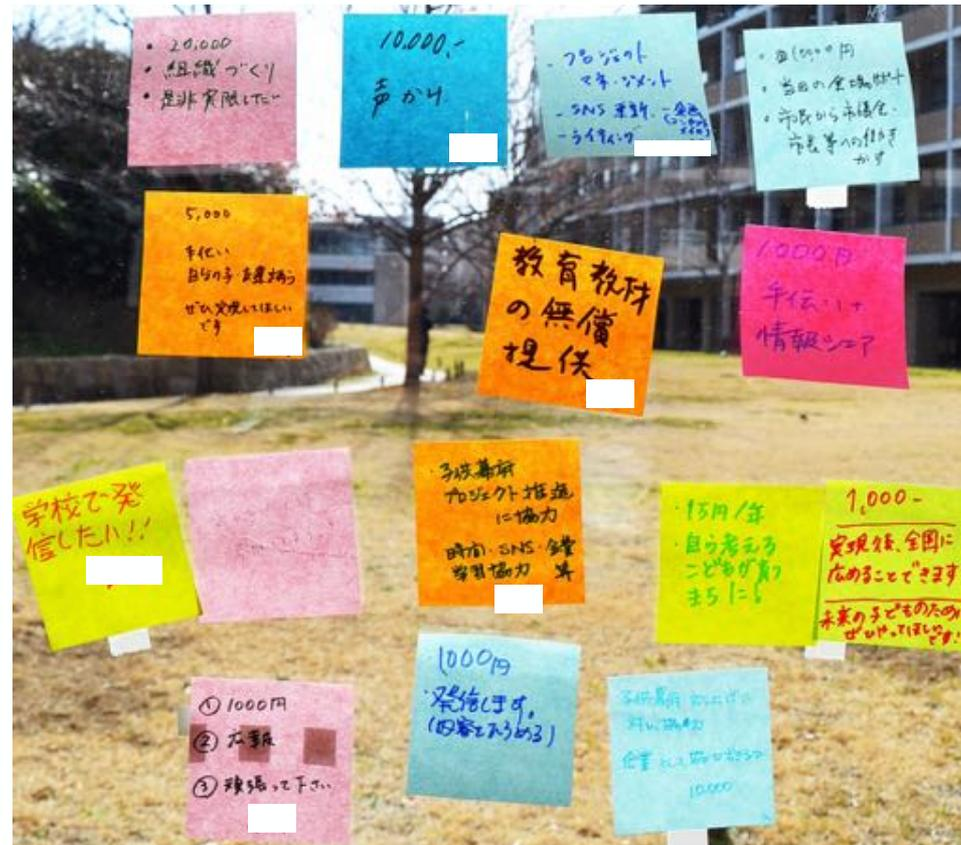 ・20,000
・組織づくり
・是非実限したい
10,000.-
声かけ
- プロジェクト
マネージメント
- SNS 更新
- ライティング
・当日の会場サポート
・市民から市議会・
市長等への働き
かけ
5,000
手伝い
ぜひ実現してほしい
です
教育教材
の無償
提供
1000円
手伝い+
情報シェア
学校で発
信したい!!
・子供幕府
プロジェクト推進
に協力
時間・SNS・金銭
学習協力 等
・1万円/年
・自ら考える
こどもが育つ
まちに!
1,000-
実現後、全国に
広めることできます
未来の子どものために
ぜひやってほしいです!
① 1000円
② 広報
③ 頑張って下さい
1000円
・発信します。
子供幕府
10.000